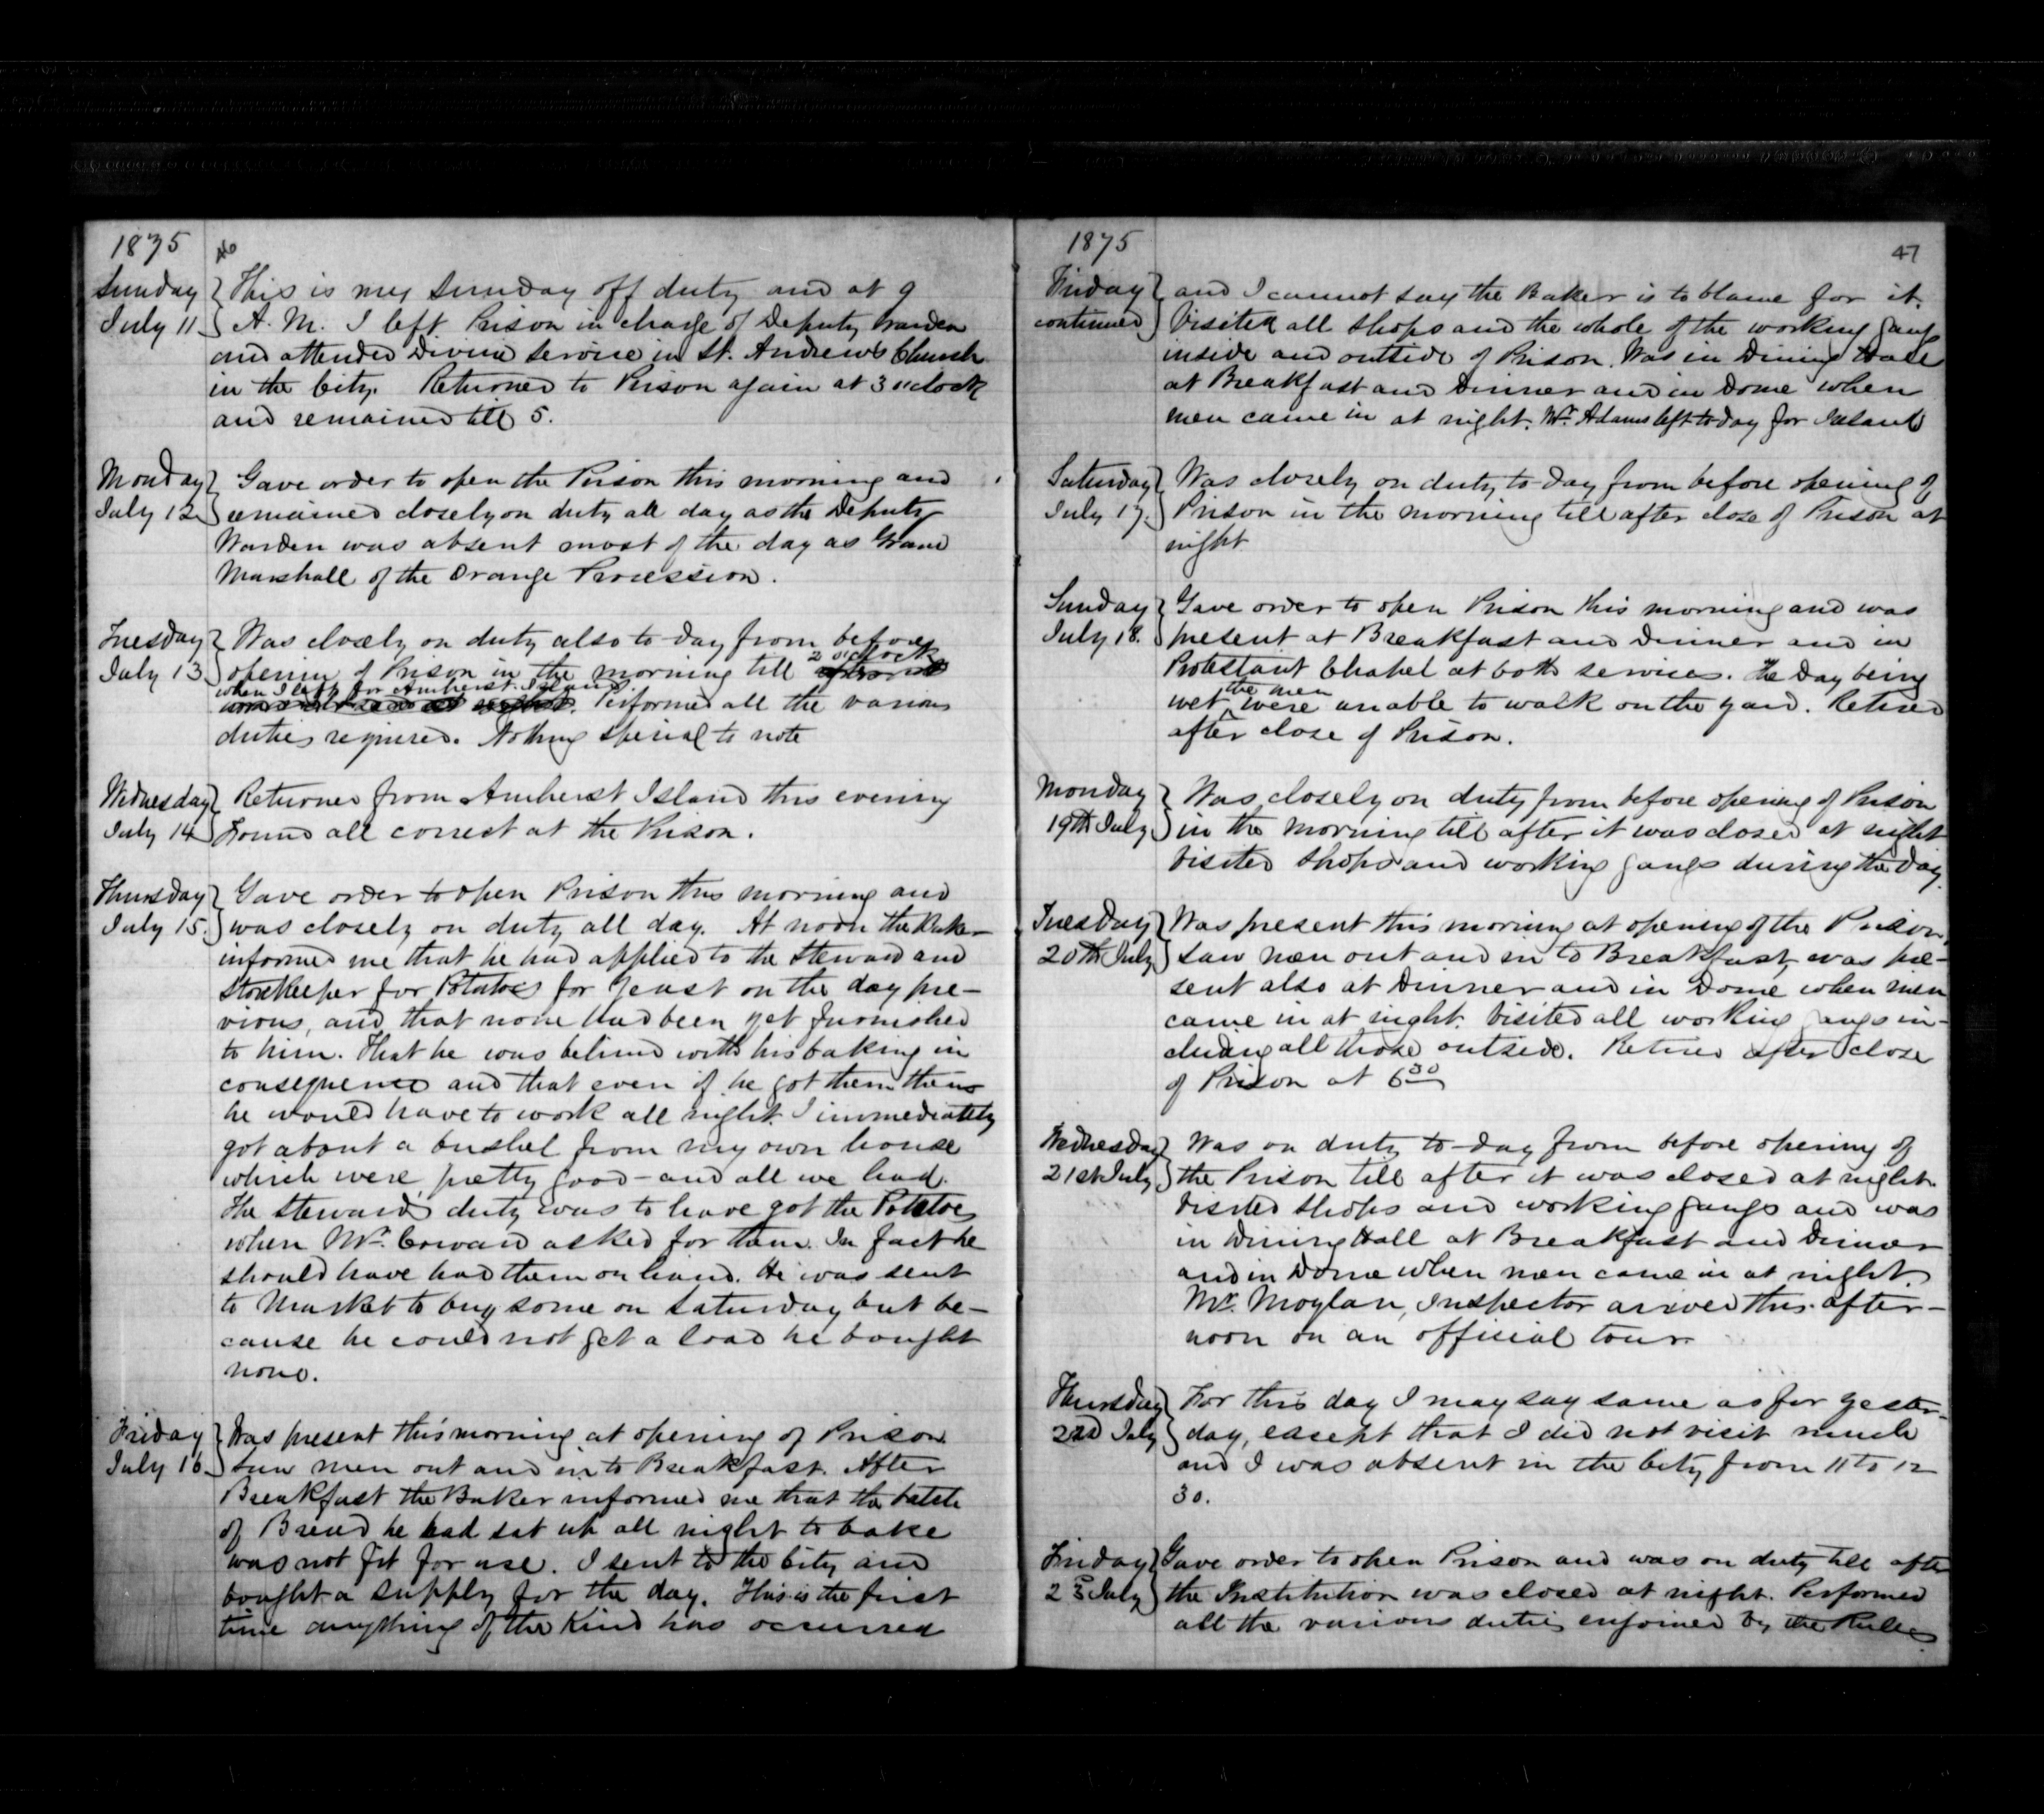 1875
46
Sunday
July 11
This is my Sunday off duty and at 9
A. M. I left Prison in charge of Deputy Warden
and attended Divine Service in St. Andrew's Church
in the City. Returned to Prison again at 3 o'clock
and remained till 5.
Monday
July 12
Gave order to open the Prison this morning and
remained closely on duty all day as the Deputy
Warden was absent most of the day as Grand
Marshall of the Orange Procession.
Tuesday
July 13
Was closely on duty also to-day from before
opening of Prison in the morning till 2 o'clock
when I left for Amherst Island. Performed all the various
duties required. Nothing special to note
Wednesday
July 14
Returned from Amherst Island this evening
Found all correct at the Prison.
Thursday
July 15.
Gave order to open Prison this morning and
was closely on duty all day. At noon the Baker
informed me that he had applied to the Steward and
Storekeeper for Potatoes for Yeast on the day pre-
vious, and that none had been yet furnished
to him. That he was behind with his baking in
consequence and that even if he got them then
he would have to work all night. I immediately
got about a bushel from my own house
which were pretty good - and all we had.
The Steward's duty was to have got the Potatoes
when Mr. Coward asked for them. In fact he
should have had them on hand. He was sent
to Market to buy some on Saturday but be-
cause he could not get a load he bought
none.
Friday
July 16
Was present this morning at opening of Prison.
Saw men out and in to Breakfast. After
Breakfast the Baker informed me that the batch
of Bread he had sat up all night to bake
was not fit for use. I sent to the City and
bought a supply for the day. This is the first
time anything of the Kind has occurred
1875
47
Friday
continued
and I cannot say the Baker is to blame for it.
Visited all Shops and the whole of the working gangs
inside and outside of Prison. Was in Dining Hall
at Breakfast and Dinner and in Dome when
men came in at night. Mr. Adams left to-day for Island
Saturday
July 17.
Was closely on duty to-day from before opening of
Prison in the morning till after close of Prison at
night
Sunday
July 18.
Gave order to open Prison this morning and was
present at Breakfast and Dinner and in
Protestant Chapel at both services. The Day being
wet the men were unable to walk on the yard. Retired
after close of Prison.
Monday
19th July
Was closely on duty from before opening of Prison
in the morning till after it was closed at night
Visited Shops and working gangs during the day.
Tuesday
20th July
Was present this morning at opening of the Prison,
saw men out and in to Breakfast, was pre-
sent also at Dinner and in Dome when men
came in at night. Visited all working gangs in-
cluding all those outside. Retired after close
of Prison at 6 30
Wednesday
21st July
Was on duty to-day from before opening of
the Prison till after it was closed at night.
Visited Shops and working gangs and was
in Dining Hall at Breakfast and Dinner
and in Dome when men came in at night.
Mr. Moylan, Inspector arrived this after-
noon on an official tour.
Thursday
22d July
For this day I may say same as for yester-
day, except that I did not visit much
and I was absent in the City from 11 to 12
30.
Friday
23 July
Gave order to open Prison and was on duty till after
the Institution was closed at night. Performed
all the various duties enjoined by the Rules